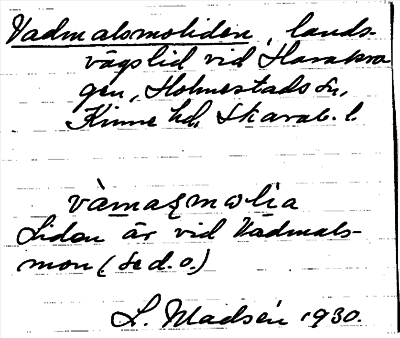 Vadmalsmoliden, lands-
vägslid vid Harakra
gen, Holmestads sn,
Kinne hd, Skarab. l.
vàmaʂmɷlia
Liden är vid Vadmals-
mon (se d. o.)
L. Madsén 1930.